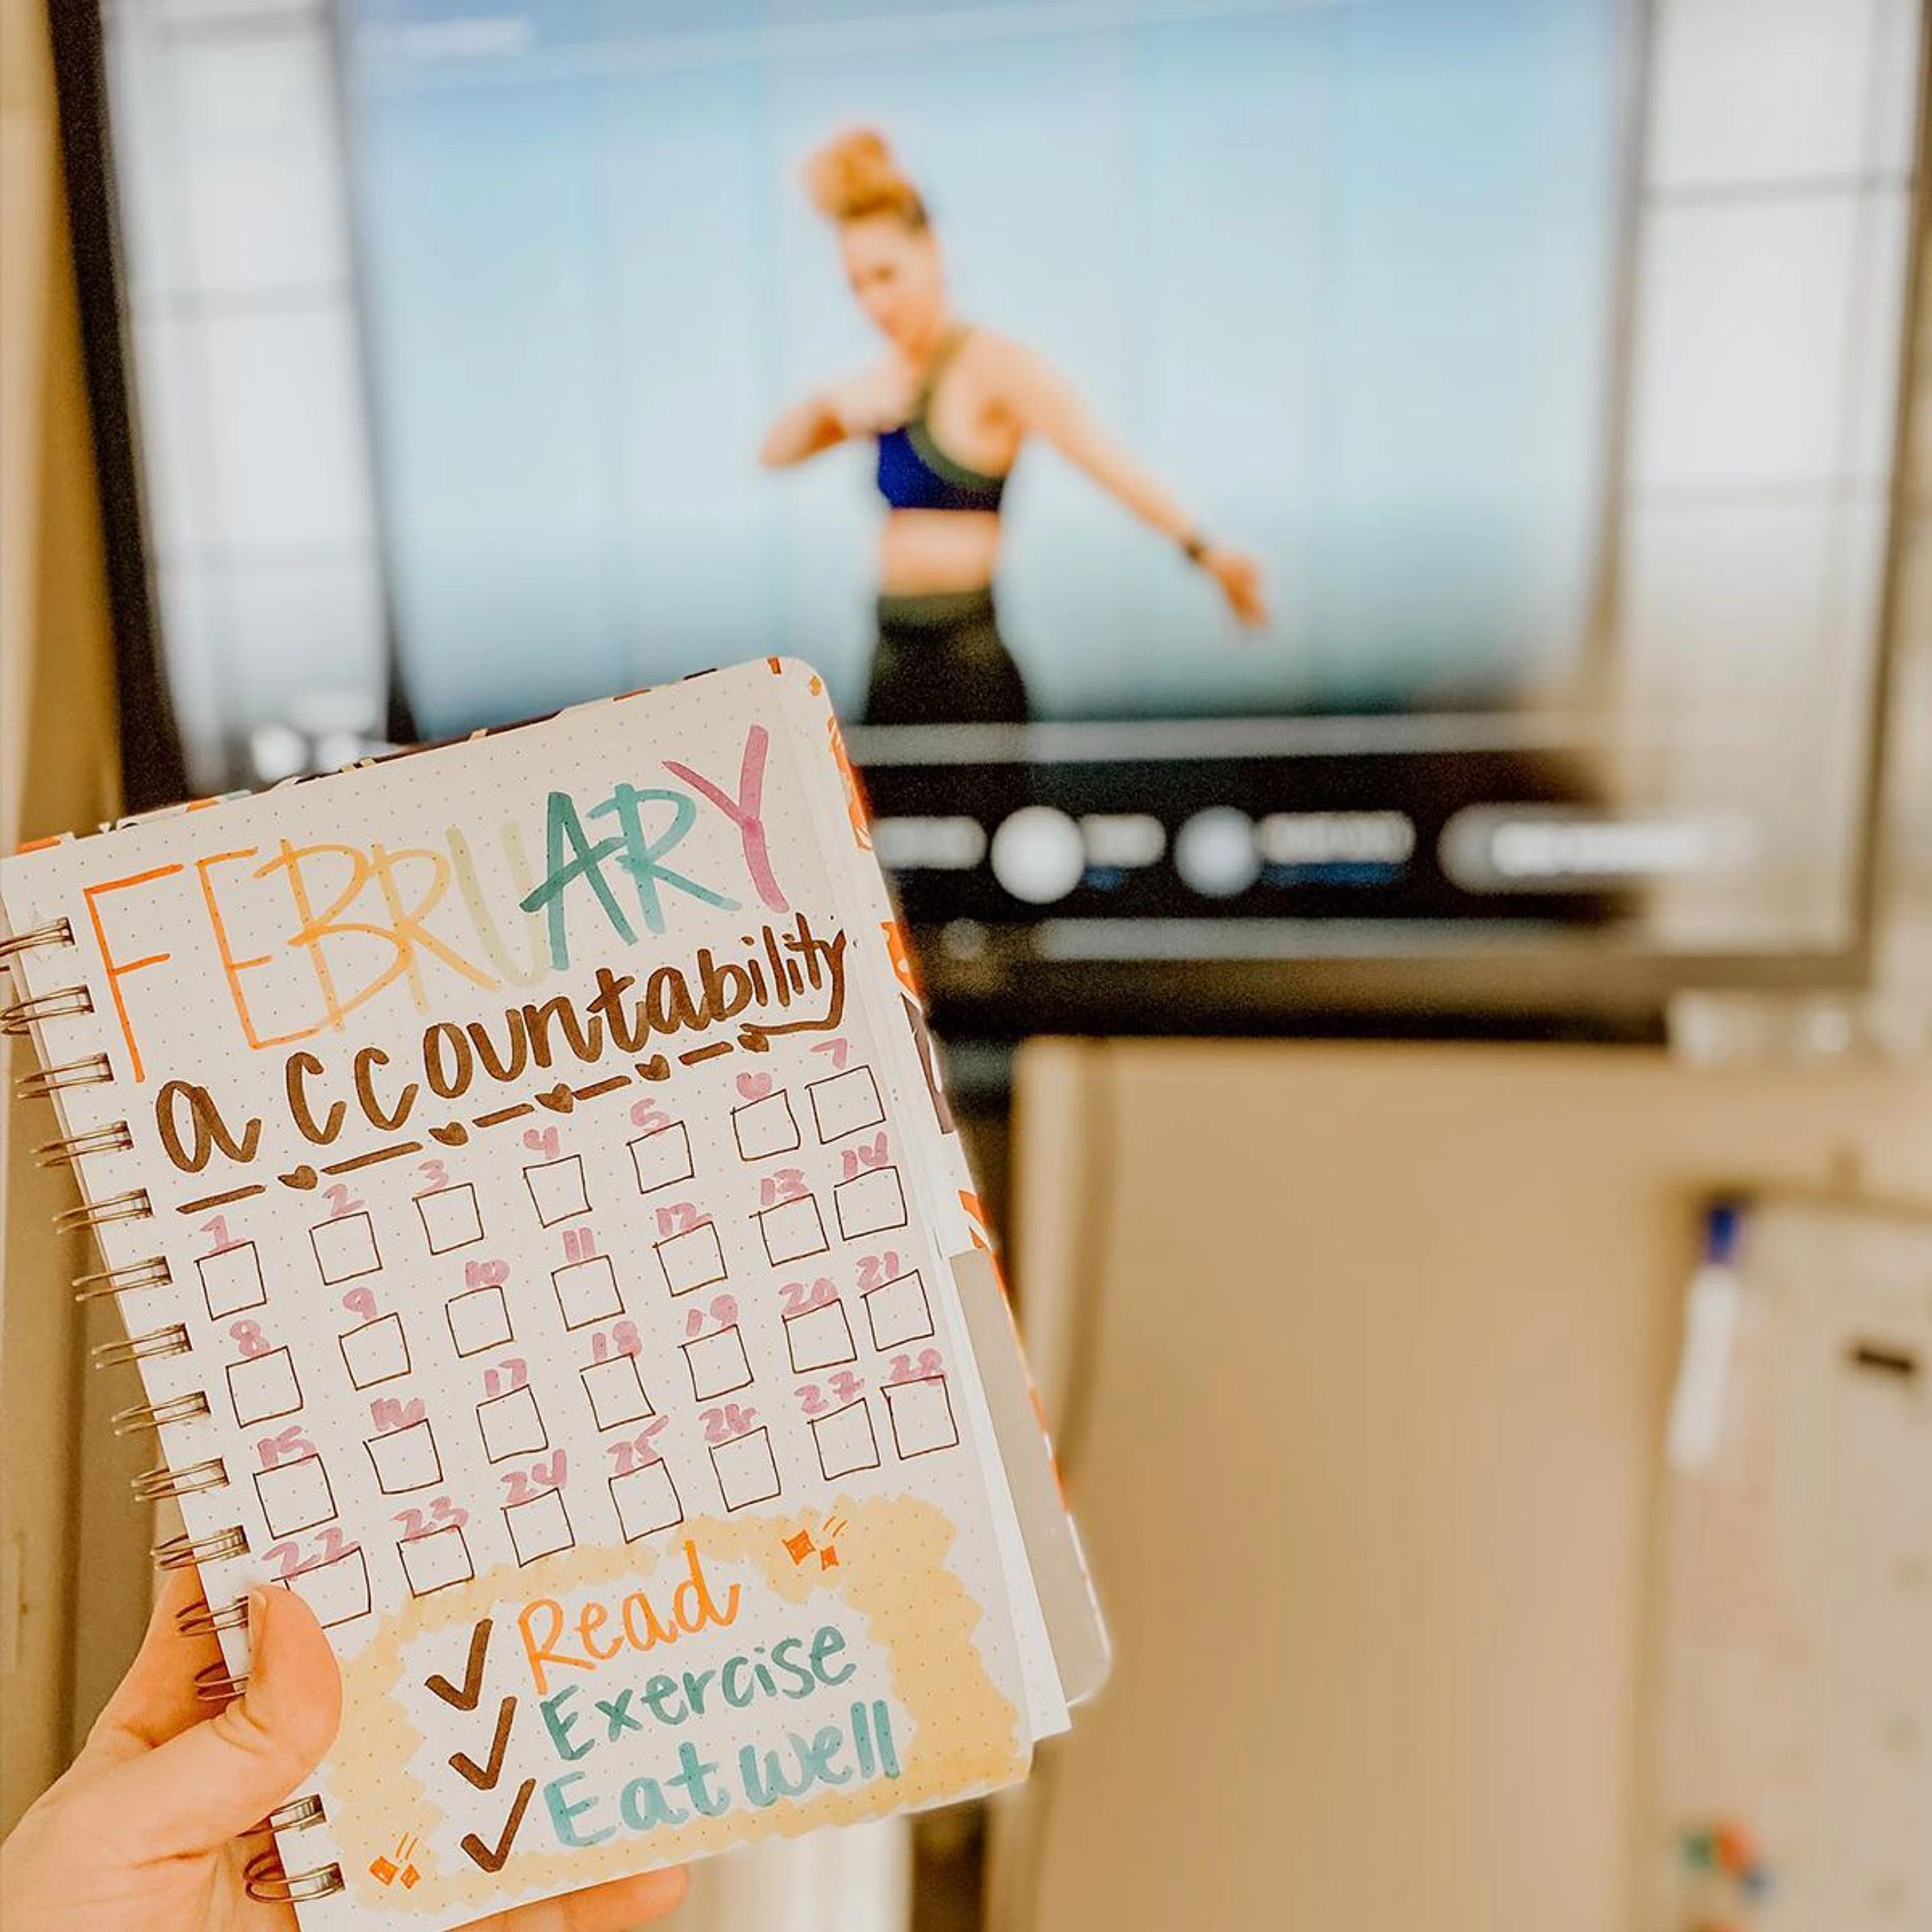 FEBRUARY
accountability
1 2 3 4 5 6 7
8 9 10 11 12 13 14
15 16 17 18 19 20 21
22 23 24 25 26 27 28
Read
Exercise
Eat well